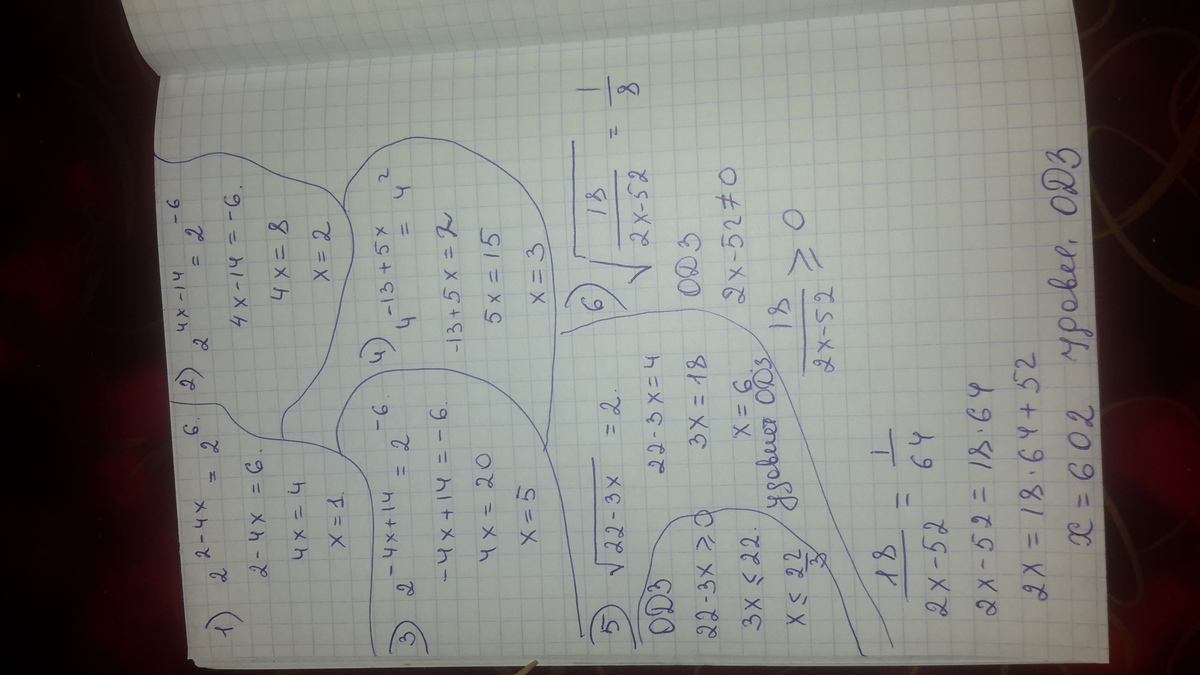 1) 2^{2-4x} = 2^6.
2-4x = 6.
4x = 4
x = 1.
2) 2^{4x-14} = 2^{-6}
4x-14 = -6.
4x = 8
x = 2
3) 2^{-4x+14} = 2^{-6}.
-4x+14 = -6.
4x = 20
x = 5
4) 4^{-13+5x} = 4^2
-13+5x = 2
5x = 15
x = 3
5) √(22-3x) = 2.
ОДЗ
22-3x ≥ 0
3x ≤ 22.
x ≤ 22/3
22-3x = 4
3x = 18
x = 6.
удовлет ОДЗ
6) √(18/(2x-52)) = 1/8
ОДЗ
2x-52 ≠ 0
18/(2x-52) ≥ 0
18/(2x-52) = 1/64
2x-52 = 18·64
2x = 18·64+52
x = 602 удовл. ОДЗ